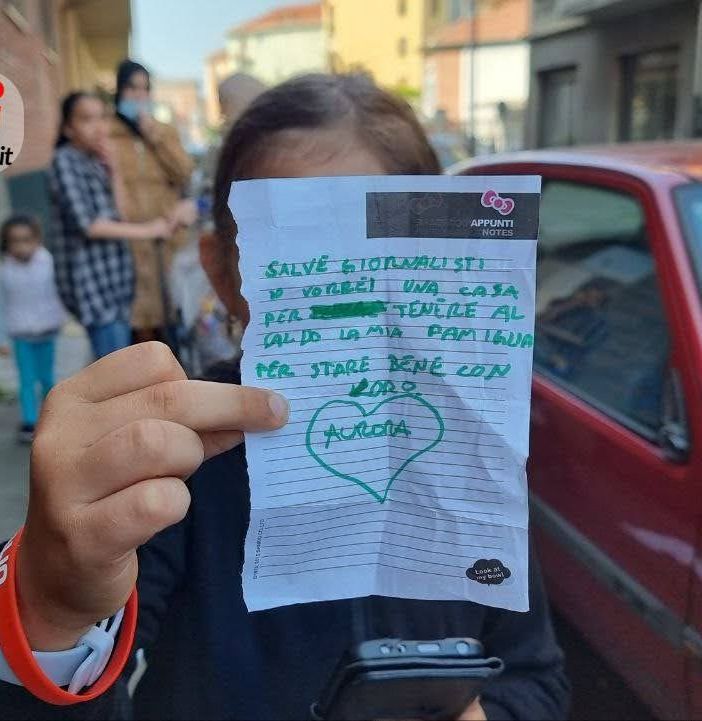 it
APPUNTI
NOTES
SALVE GIORNALISTI
IO VORREI UNA CASA
PER TENERE AL
CALDO LA MIA FAMIGLIA
PER STARE BENE CON
LORO
AURORA
Look at
my bow!